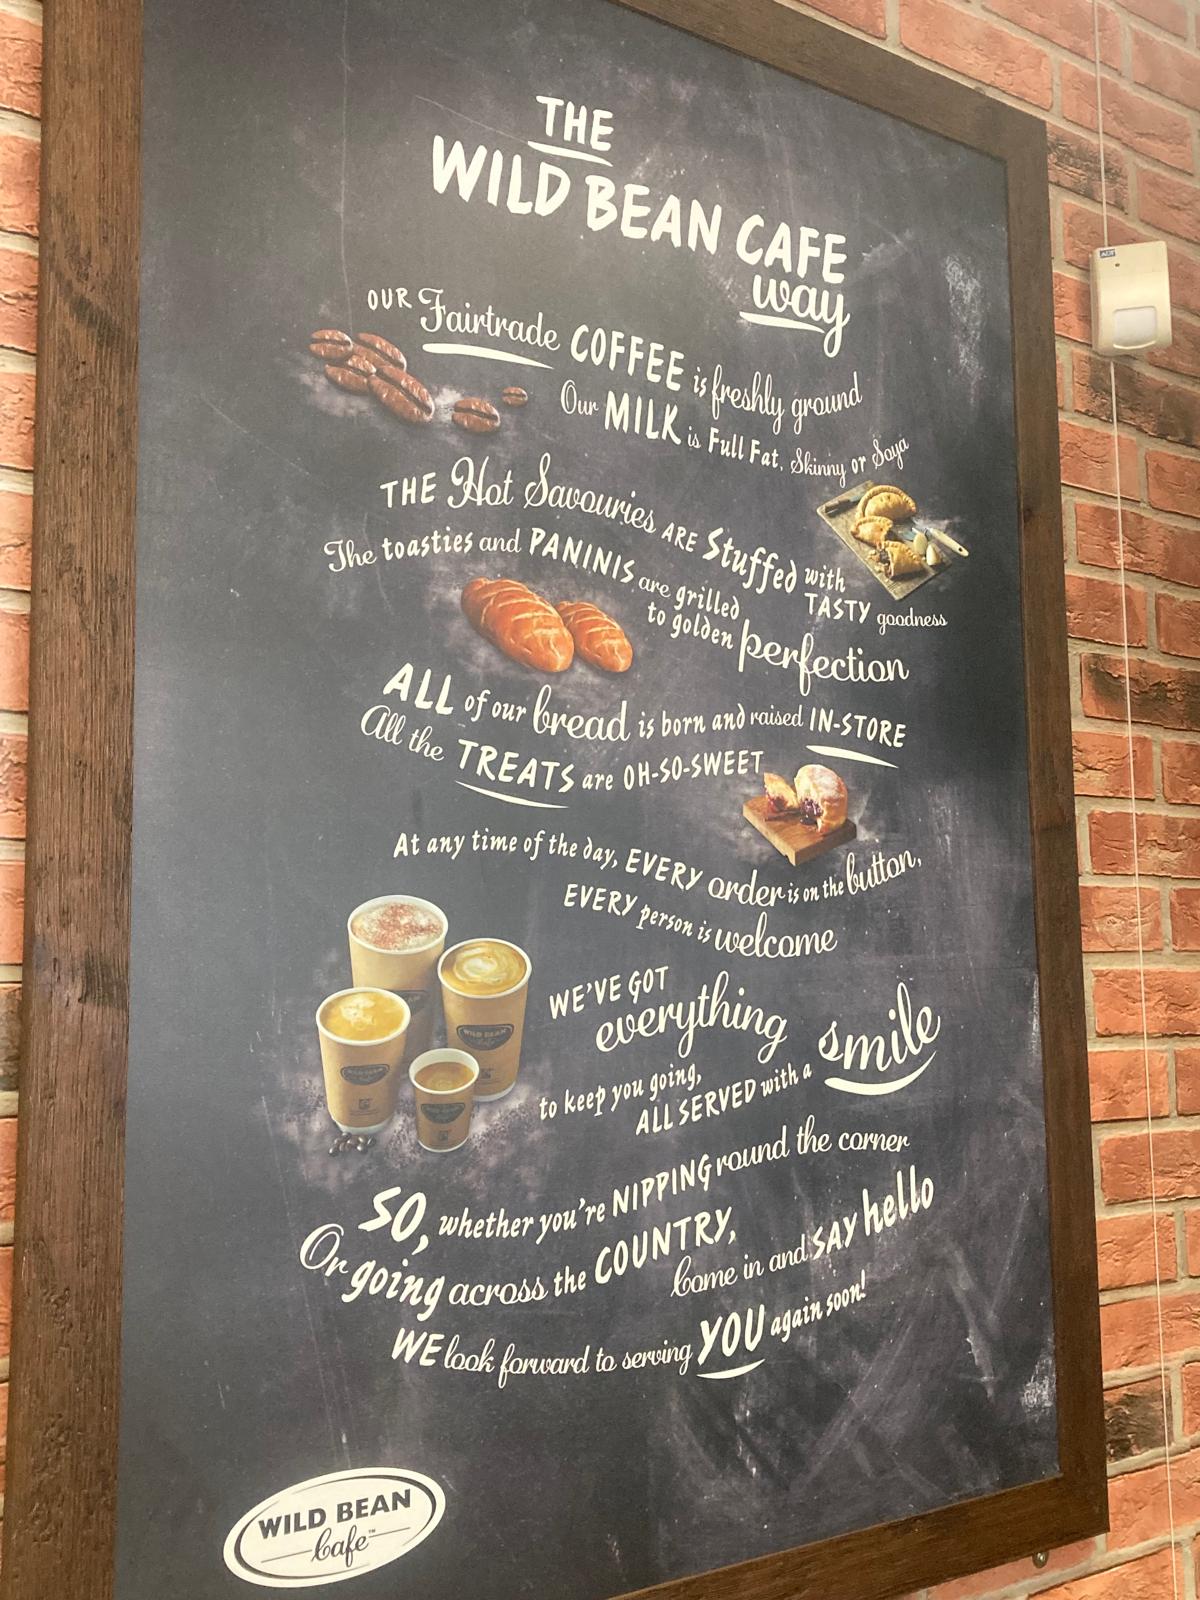 THE
WILD BEAN CAFE
way
OUR Fairtrade COFFEE is freshly ground
Our MILK is Full Fat, Skinny or Soya
THE Hot Savouries ARE Stuffed with
TASTY goodness
The toasties and PANINIS are grilled
to golden perfection
ALL of our bread is born and raised IN-STORE
All the TREATS are OH-SO-SWEET
At any time of the day, EVERY order is on the button,
EVERY person is welcome
WE'VE GOT
everything
to keep you going,
ALL SERVED with a smile
SO, whether you're NIPPING round the corner
Or going across the COUNTRY,
Come in and SAY hello
WE look forward to serving YOU again soon!
WILD BEAN
Cafe™
WILD BEAN
Cafe
ADT